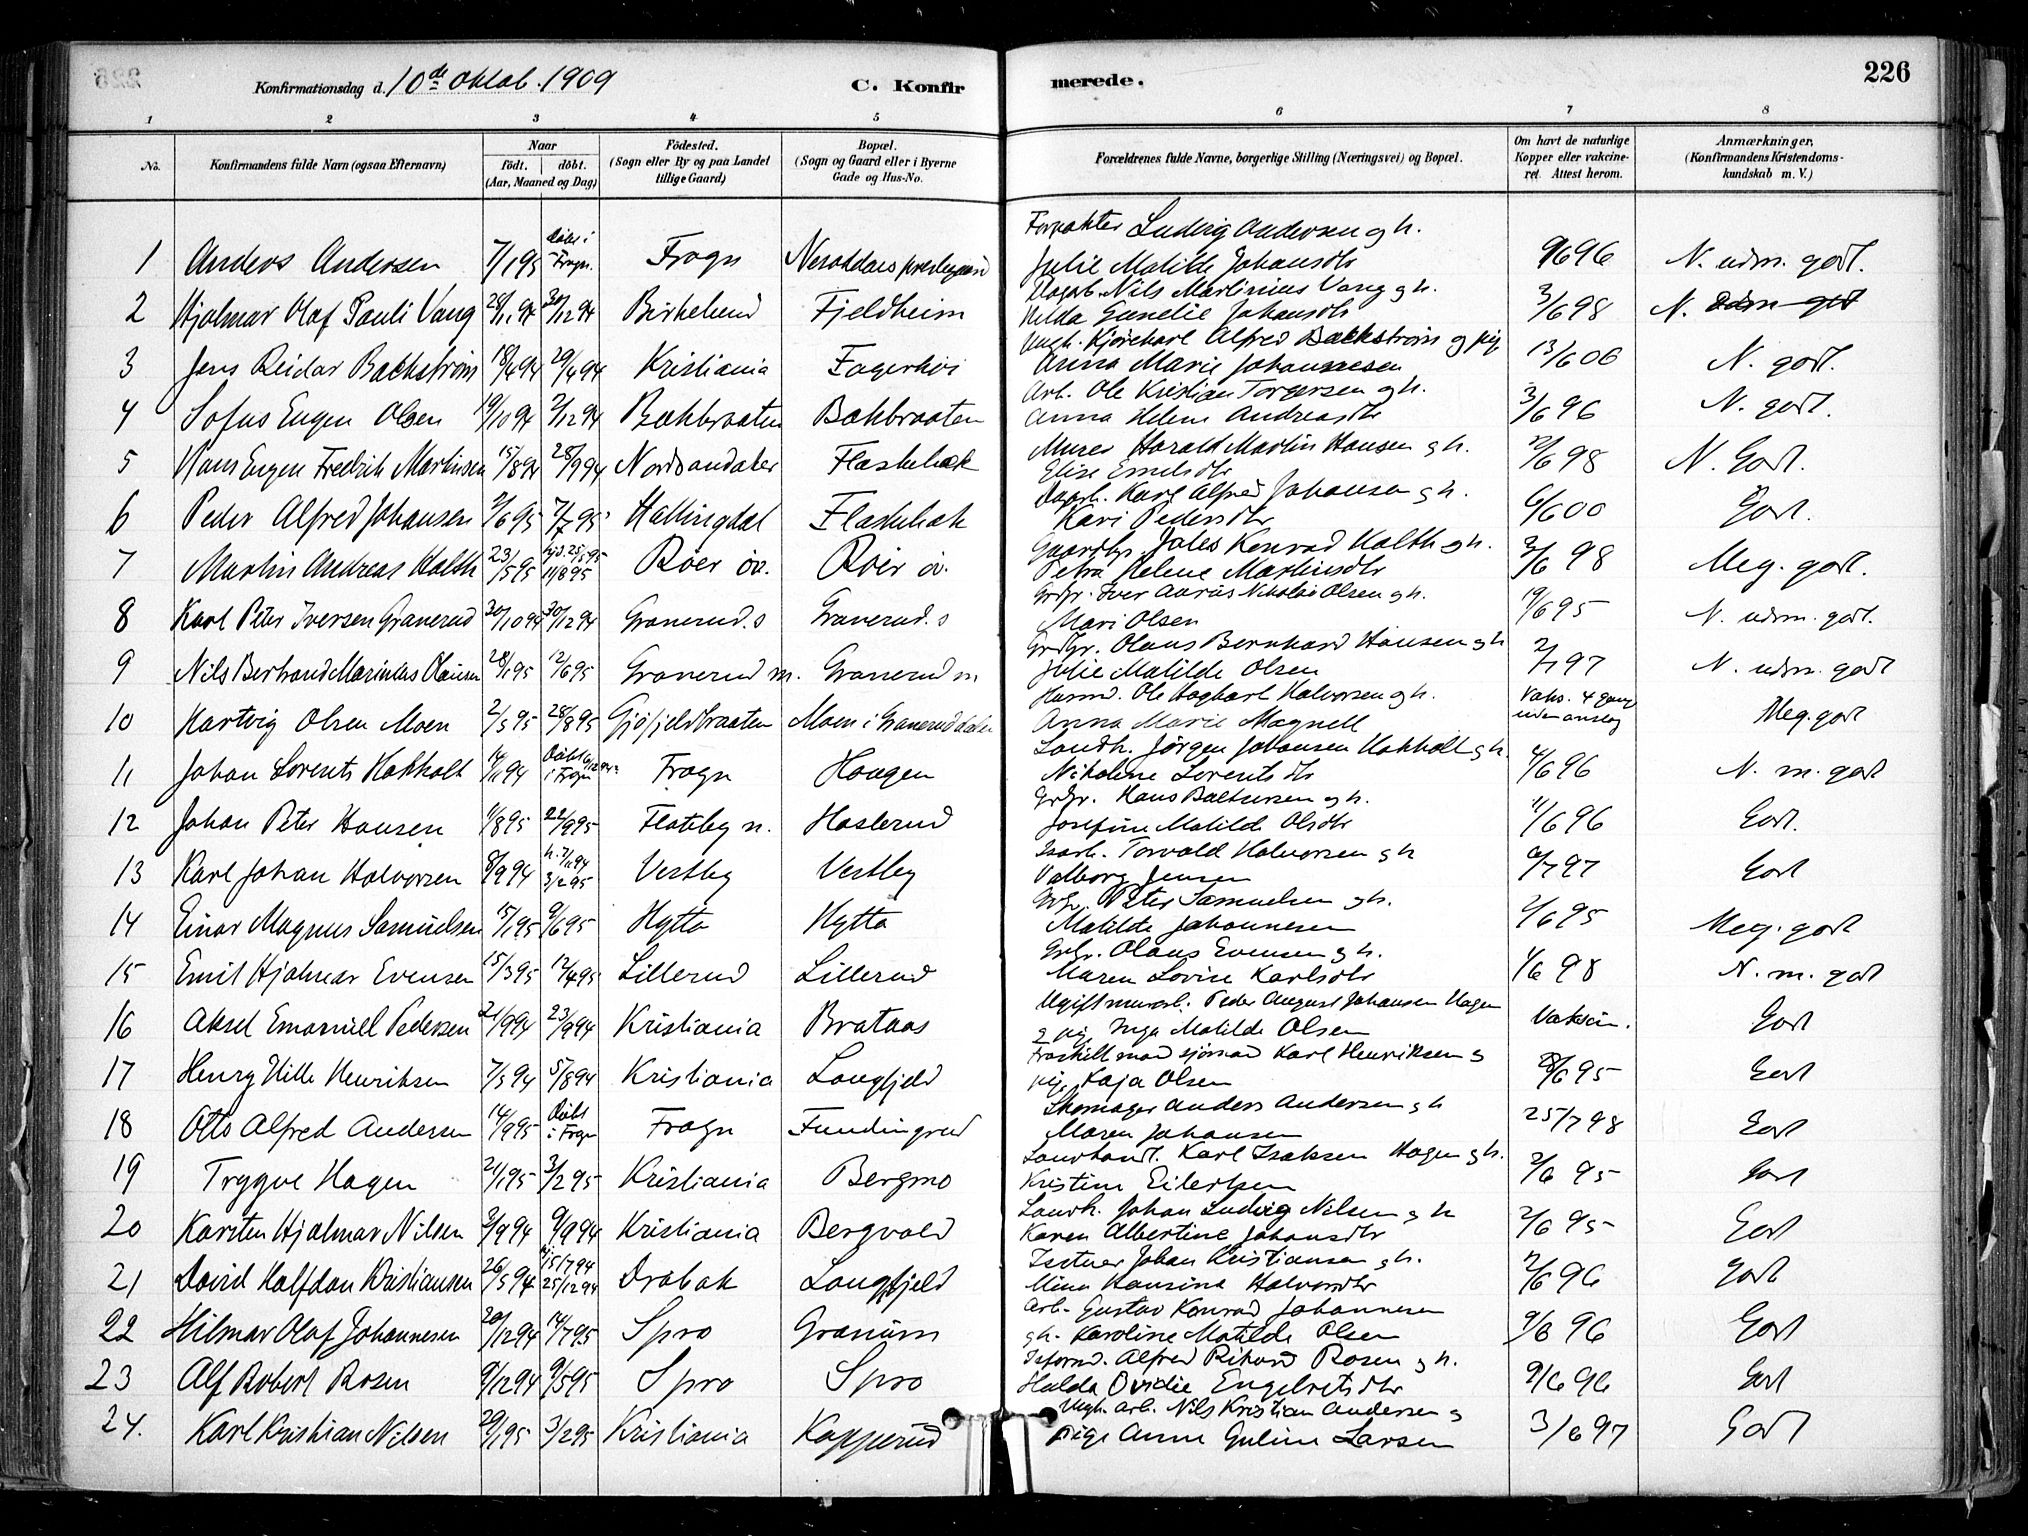 Konfirmationsdag d. 10de Oktob. 1909 C. Konfirmerede. 226
1 2 3 4 5 6 7 8
No. Konfirmandens fulde Navn (ogsaa Efternavn) Naar födt. döbt. (Aar, Maaned og Dag) Födested. (Sogn eller By og paa Landet tillige Gaard) Bopæl. (Sogn og Gaard eller i Byerne Gade og Hus-No. Forældrenes fulde Navne, borgerlige Stilling (Næringsvei) og Bopæl. Om havt de naturlige Kopper eller vakcineret. Attest herom. Anmærkninger, (Konfirmandens Kristendomskundskab m. V.)
1 Anders Andersen 7/1 95 Døbt i Frogn. Frogn Nesoddens prestegaard Forpakter Ludvig Andersen g h. Julie Matilde Johansdtr 9/6 96 N. udm. godt.
2 Hjalmar Olaf Pauli Vang 28/11 94 30/12 94 Birkelund Fjeldheim Dagab. Nils Martinius Vang g h. Hilda Gunelie Johansdtr 3/6 98 N. udm godt
3 Jens Reidar Backstrøm 18/4 94 29/4 94 Kristiania Fagerhøi Ungk. Kjørekarl Alfred Backstrøm og pig Anna Marie Johannesen 13/6 06 N. godt.
4 Sofus Eugen Olsen 19/10 94 2/12 94 Bakbraaten Bakbraaten Arb. Ole Kristian Torgersen g h. Anna Helene Andreasdtr 3/6 96 N. godt.
5 Hans Eugen Fredrik Martinsen 15/8 94 28/9 94 Nordsandaker Flaskebæk Murer Harald Martin Hansen g h. Elise Emilsdtr 2/6 98 N. Godt.
6 Peder Alfred Johansen 2/6 95 7/7 95 Hallingdal Flaskebæk Dagarb. Karl Alfred Johansen g h. Kari Pedersdtr 6/6 00 Godt.
7 Martin Andreas Holth 23/5 95 hjd. 25/5 95 11/8 95 Røer øv. Røer øv. Gaardbr. Jales Konrad Holth g h. Petra Helene Martinsdtr 3/6 98 Meg. godt.
8 Karl Peter Iversen Granerud 30/10 94 30/12 94 Granerud. s Granerud. s Grdbr. Iver Aurius Nikolai Olsen g h. Mari Olsen 19/6 95 N. udm. godt.
9 Nils Bertrand Marinius Olausen 28/1 95 12/6 95 Granerud m. Granerud m Grdbr. Olaus Bernhard Hansen g h Julie Matilde Olsen 2/7 97 N. udm. godt
10 Hartvig Olsen Moen 2/5 95 28/8 95 Gjøfjeldbraaten Moen i Graneruddalen Husmd. Ole Hagbart Halvorsen g h. Anna Marie Magnell Vaks. 4 gang uden anslag Meg. godt
11 Johan Lorents Hakholt 14/11 94 Døbt i Frogn Frogn Haugen Landh. Jørgen Johansen Hakholt g h. Nikoline Lorentsdtr 4/6 96 N. m. godt
12 Johan Peter Hansen 1/8 95 22/9 95 Flateby n. Haslerud Grdbr. Hans Baltsersen g h. Josefine Matilde Olsdtr 11/6 96 Godt.
13 Karl Johan Halvorsen 8/9 94 h. 7/11 94 3/2 95 Vestby Vestby Isarb. Torvald Halvorsen g h Valborg Jensen 6/7 97 Godt
14 Einar Magnus Samuelsen 15/1 95 9/6 95 Hytta Hytta Grbr. Peter Samuelsen g h. Matilde Johannesen 2/6 95 Meg. godt
15 Emil Hjalmar Evensen 15/3 95 12/4 95 Lillerud Lillerud Grbr. Olaus Evensen g h. Maren Lovise Karlsdtr 1/6 98 N. m. godt
16 Aksel Emanuel Pedersen 21/9 94 23/9 94 Kristiania Brataas Ugift murarb. Peder August Johansen Hagen g pig. Inga Matilde Olsen Vaksin. Godt
17 Henry Hille Henriksen 7/5 94 5/8 94 Kristiania Langfjeld Fraskilt mand sjømand Karl Henriksen g pig. Kaja Olsen 8/6 95 Godt
18 Otto Alfred Andersen 14/9 95 Døbt i Frogn Frogn Fundingrud Skomager Anders Andersen g h Maren Johansen 25/7 98 Godt
19 Trygve Hagen 21/1 95 3/2 95 Kristiania Bergmo Landhandl. Karl Isaksen Hagen g h. Kristine Eilertsen 2/6 95 Godt
20 Karsten Hjalmar Nilsen 3/9 94 9/9 94 Kristiania Bergvold Landh. Johan Ludvig Nilsen g h Karen Albertine Johansdtr 2/6 95 Godt
21 David Halfdan Kristiansen 26/5 94 hj. 15/7 94 25/12 94 Drøbak Langfjeld Johan Kristiansen g h. Mina Hansine Halvorsdtr 2/6 96 Godt
22 Hilmar Olaf Johannesen 20/12 94 14/7 95 Spro Granum Arb. Gustav Konrad Johannesen g h. Karoline Matilde Olsen 9/6 96 Godt
23 Alf Robert Rosen 9/12 94 9/5 95 Spro Spro Isformd. Alfred Rikard Rosen g h. Hulda Ovidie Engebretsdtr 9/6 96 Godt
24. Karl Kristian Nilsen 29/1 95 3/2 95 Kristiania Kapperud Ungk. arb. Nils Kristian Andersen g Pige Anne Guline Larsen 3/6 97 Godt